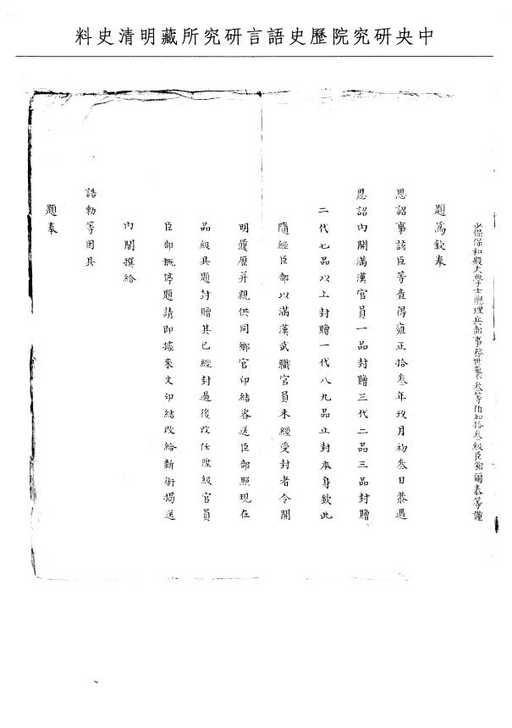 中央研究院歷史語言研究所藏明清史料
少保保和殿大學士總理兵部事務世襲叁等伯加拾叁級臣鄂爾泰等謹
題為欽奉
恩詔事該臣等查得雍正拾叁年玖月初叁日恭遇
恩詔內開滿漢官員一品封贈三代二品三品封贈
二代七品以上封贈一代八九品止封本身欽此
隨經臣部以滿漢武職官員未經受封者令開
明履歷并親供同鄉官印結咨送臣部照現在
品級具題封贈其已經封過後改任陞級官員
臣部概停題請即據來文印結改給新銜揭送
內閣撰給
誥勅等因具
題奉